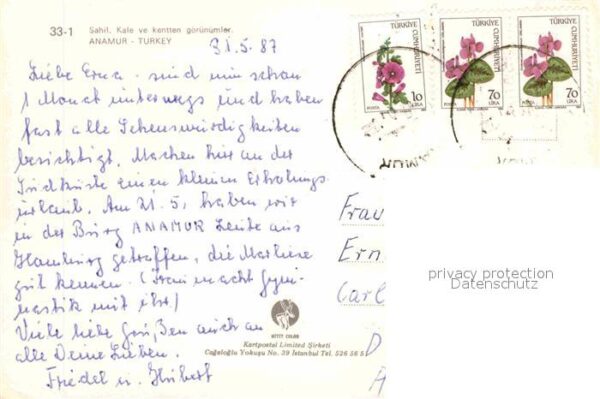 33-1 Sahil, Kale ve kentten görünümler.
ANAMUR - TURKEY
31.5.87
Liebe Erna - sind nun schon
1 Monat unterwegs und haben
fast alle Sehenswürdigkeiten
besichtigt. Machen hier an der
Südküste einen kleinen Erholungs-
urlaub. Am 21.5. haben wir
in der Burg ANAMUR Leute aus
Hamburg getroffen, die Marliese
gut kennen. (Frau macht Gym-
nastik mit ihr)
Viele liebe Grüßen auch an
alle Deine Lieben.
Friedel u. Hubert
TÜRKİYE CUMHURİYETİ
10 LİRA
TÜRKİYE CUMHURİYETİ
70 LİRA
TÜRKİYE CUMHURİYETİ
70 LİRA
Frau
Ern
Carl
D
privacy protection
Datenschutz
HİTİT COLOR
Kartpostal Limited Şirketi
Cağaloğlu Yokuşu No. 39 İstanbul Tel. 526 56 5